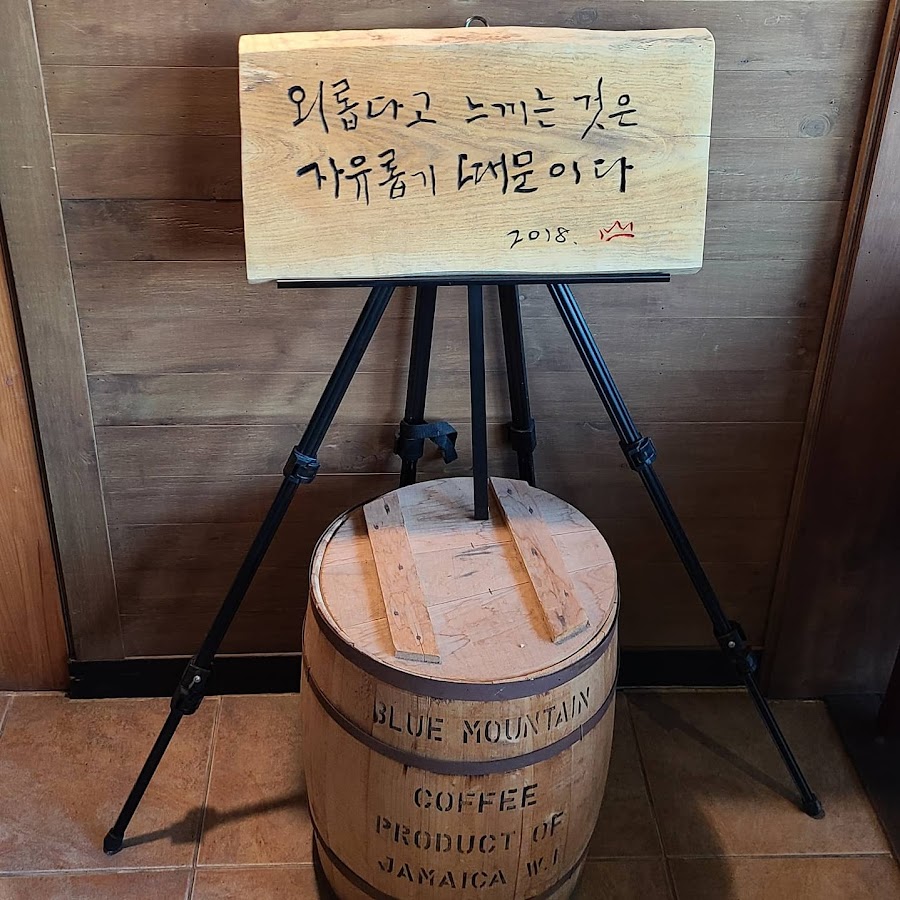 외롭다고 느끼는 것은
자유롭기 때문이다
2018.
BLUE MOUNTAIN
COFFEE
PRODUCT OF
JAMAICA W.I